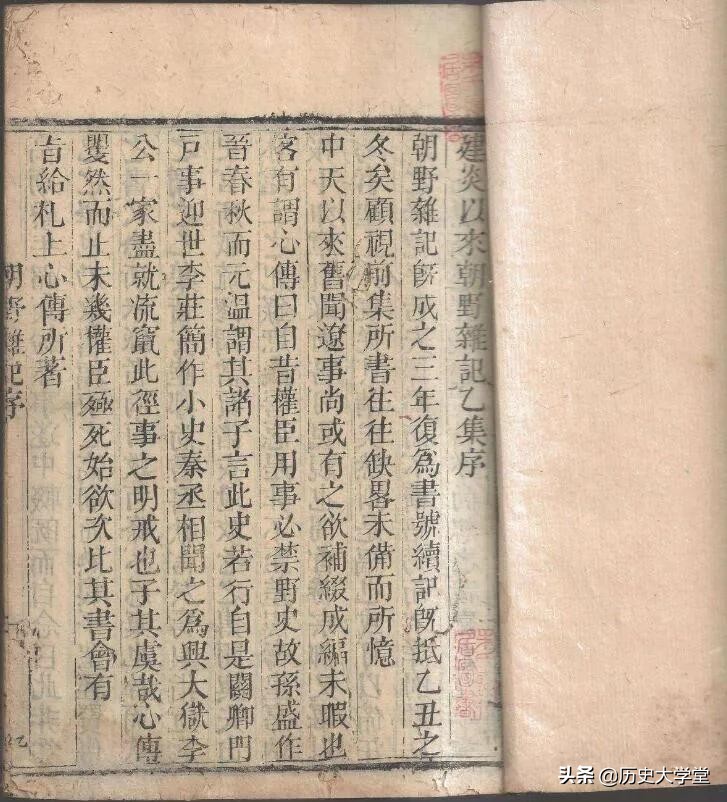 建炎以來朝野雜記乙集序
朝野雜記旣成之三年復為書號續記旣抵乙丑之
冬矣顧視前集所書往往缺畧未備而所憶
中天以來舊聞遼事尚或有之欲補綴成編未暇也
客有謂心傳曰自昔權臣用事必禁野史故孫盛作
晉春秋而元溫謂其諸子言此史若行自是關卿門
戸事迎世李莊簡作小史秦丞相聞之為興大獄李
公一家盡就流竄此徑事之明戒也子其虞哉心傳
矍然而止未幾權臣殛死始欲次比其書會有
旨給札上心傳所著
朝野雜記序
头条 @历史大学堂